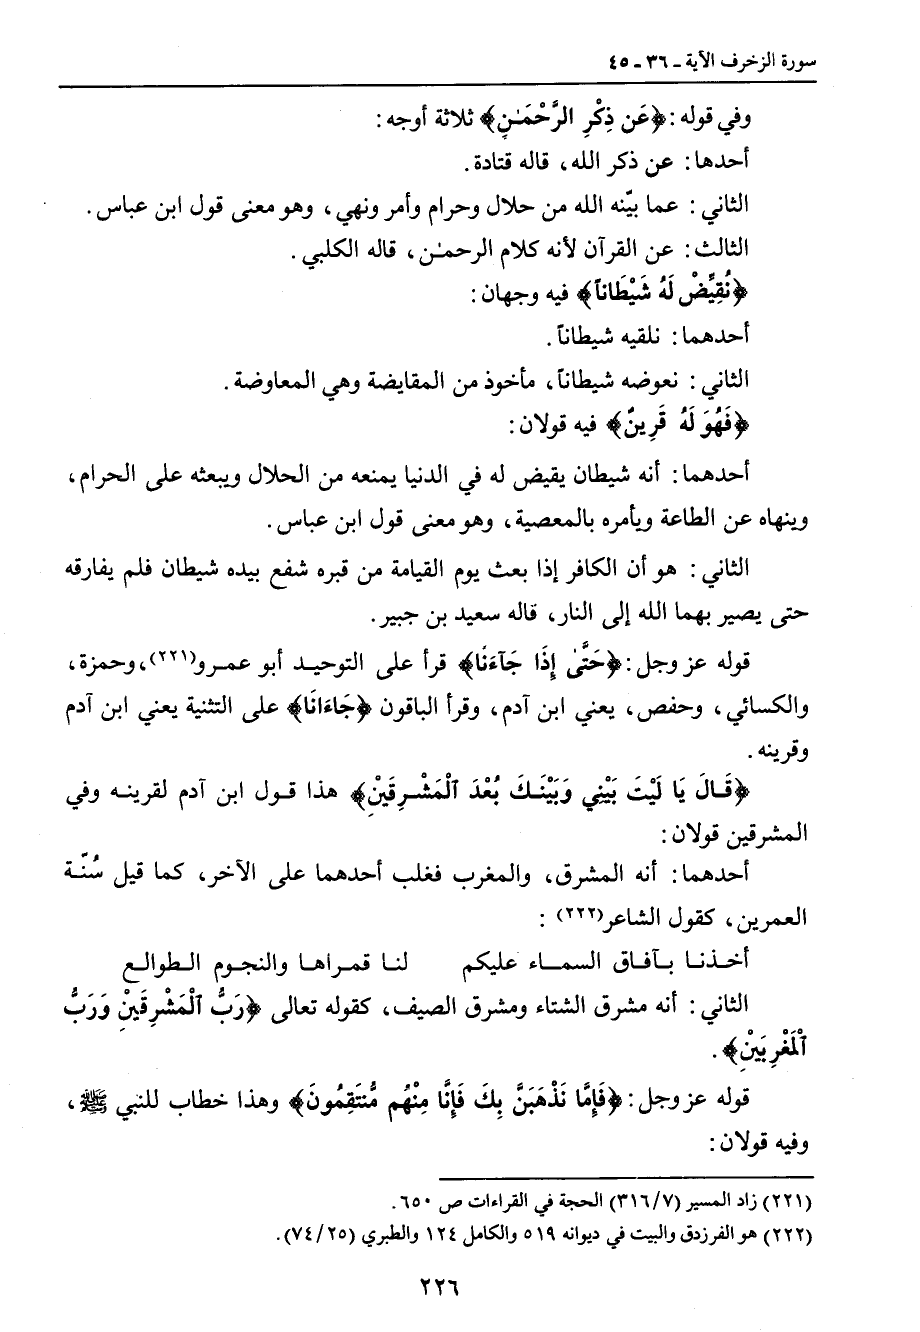 سورة الزخرف الآية ـ ٣٦ ـ ٤٥
وفي قوله: ﴿عَن ذِكْرِ الرَّحْمَـٰنِ﴾ ثلاثة أوجه:
أحدها: عن ذكر الله، قاله قتادة.
الثاني: عما بيّنه الله من حلال وحرام وأمر ونهي، وهو معنى قول ابن عباس.
الثالث: عن القرآن لأنه كلام الرحمـٰن، قاله الكلبي.
﴿نُقِيِّضْ لَهُ شَيْطَاناً﴾ فيه وجهان:
أحدهما: نلقيه شيطاناً.
الثاني: نعوضه شيطاناً، مأخوذ من المقايضة وهي المعاوضة.
﴿فَهُوَ لَهُ قَرِينٌ﴾ فيه قولان:
أحدهما: أنه شيطان يقيض له في الدنيا يمنعه من الحلال ويبعثه على الحرام،
وينهاه عن الطاعة ويأمره بالمعصية، وهو معنى قول ابن عباس.
الثاني: هو أن الكافر إذا بعث يوم القيامة من قبره شفع بيده شيطان فلم يفارقه
حتى يصير بهما الله إلى النار، قاله سعيد بن جبير.
قوله عز وجل: ﴿حَتَّىٰ إِذَا جَآءَنَا﴾ قرأ على التوحيد أبو عمرو(٢٢١)، وحمزة،
والكسائي، وحفص، يعني ابن آدم، وقرأ الباقون ﴿جَاءَانَا﴾ على التثنية يعني ابن آدم
وقرينه.
﴿قَالَ يَا لَيْتَ بَيْنِي وَبَيْنَكَ بُعْدَ ٱلْمَشْرِقَيْنِ﴾ هذا قول ابن آدم لقرينه وفي
المشرقين قولان:
أحدهما: أنه المشرق، والمغرب فغلب أحدهما على الآخر، كما قيل سُنّة
العمرين، كقول الشاعر(٢٢٢):
أخذنا بآفاق السماء عليكم لنا قمراها والنجوم الطوالع
الثاني: أنه مشرق الشتاء ومشرق الصيف، كقوله تعالى ﴿رَبُّ ٱلْمَشْرِقَيْنِ وَرَبُّ
ٱلْمَغْرِبَيْنِ﴾.
قوله عز وجل: ﴿فَإِمَّا نَذْهَبَنَّ بِكَ فَإِنَّا مِنْهُم مُّنتَقِمُونَ﴾ وهذا خطاب للنبي ﷺ،
وفيه قولان:
(٢٢١) زاد المسير (٣١٦/٧) الحجة في القراءات ص ٦٥٠.
(٢٢٢) هو الفرزدق والبيت في ديوانه ٥١٩ والكامل ١٢٤ والطبري (٧٤/٢٥).
٢٢٦